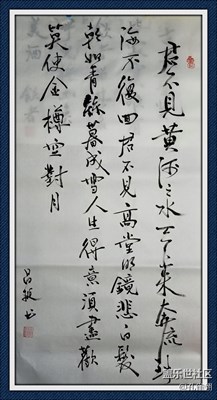 君不見黄河之水天上来奔流到
海不復回君不見高堂明鏡悲白髮
朝如青絲暮成雪人生得意須盡歡
莫使金樽空對月
盖乐世社区